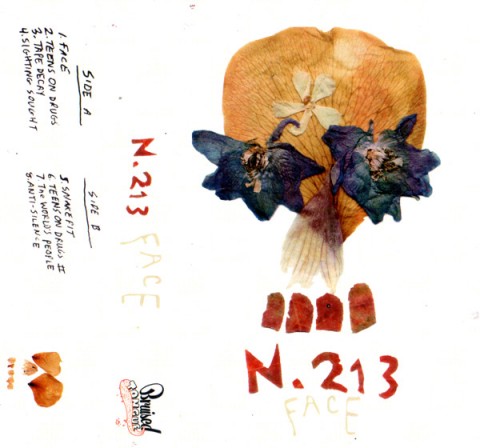 SIDE A
1. FACE
2. TEENS ON DRUGS
3. TAPE DECAY
4. SIGHTING SOUGHT
SIDE B
5 SNAKEFIT
6 TEENS ON DRUGS II
7 THE WORLD'S PEOPLE
8. ANTI-SILENCE
N. 213 FACE
Bruised
TONGUE
N. 213
FACE